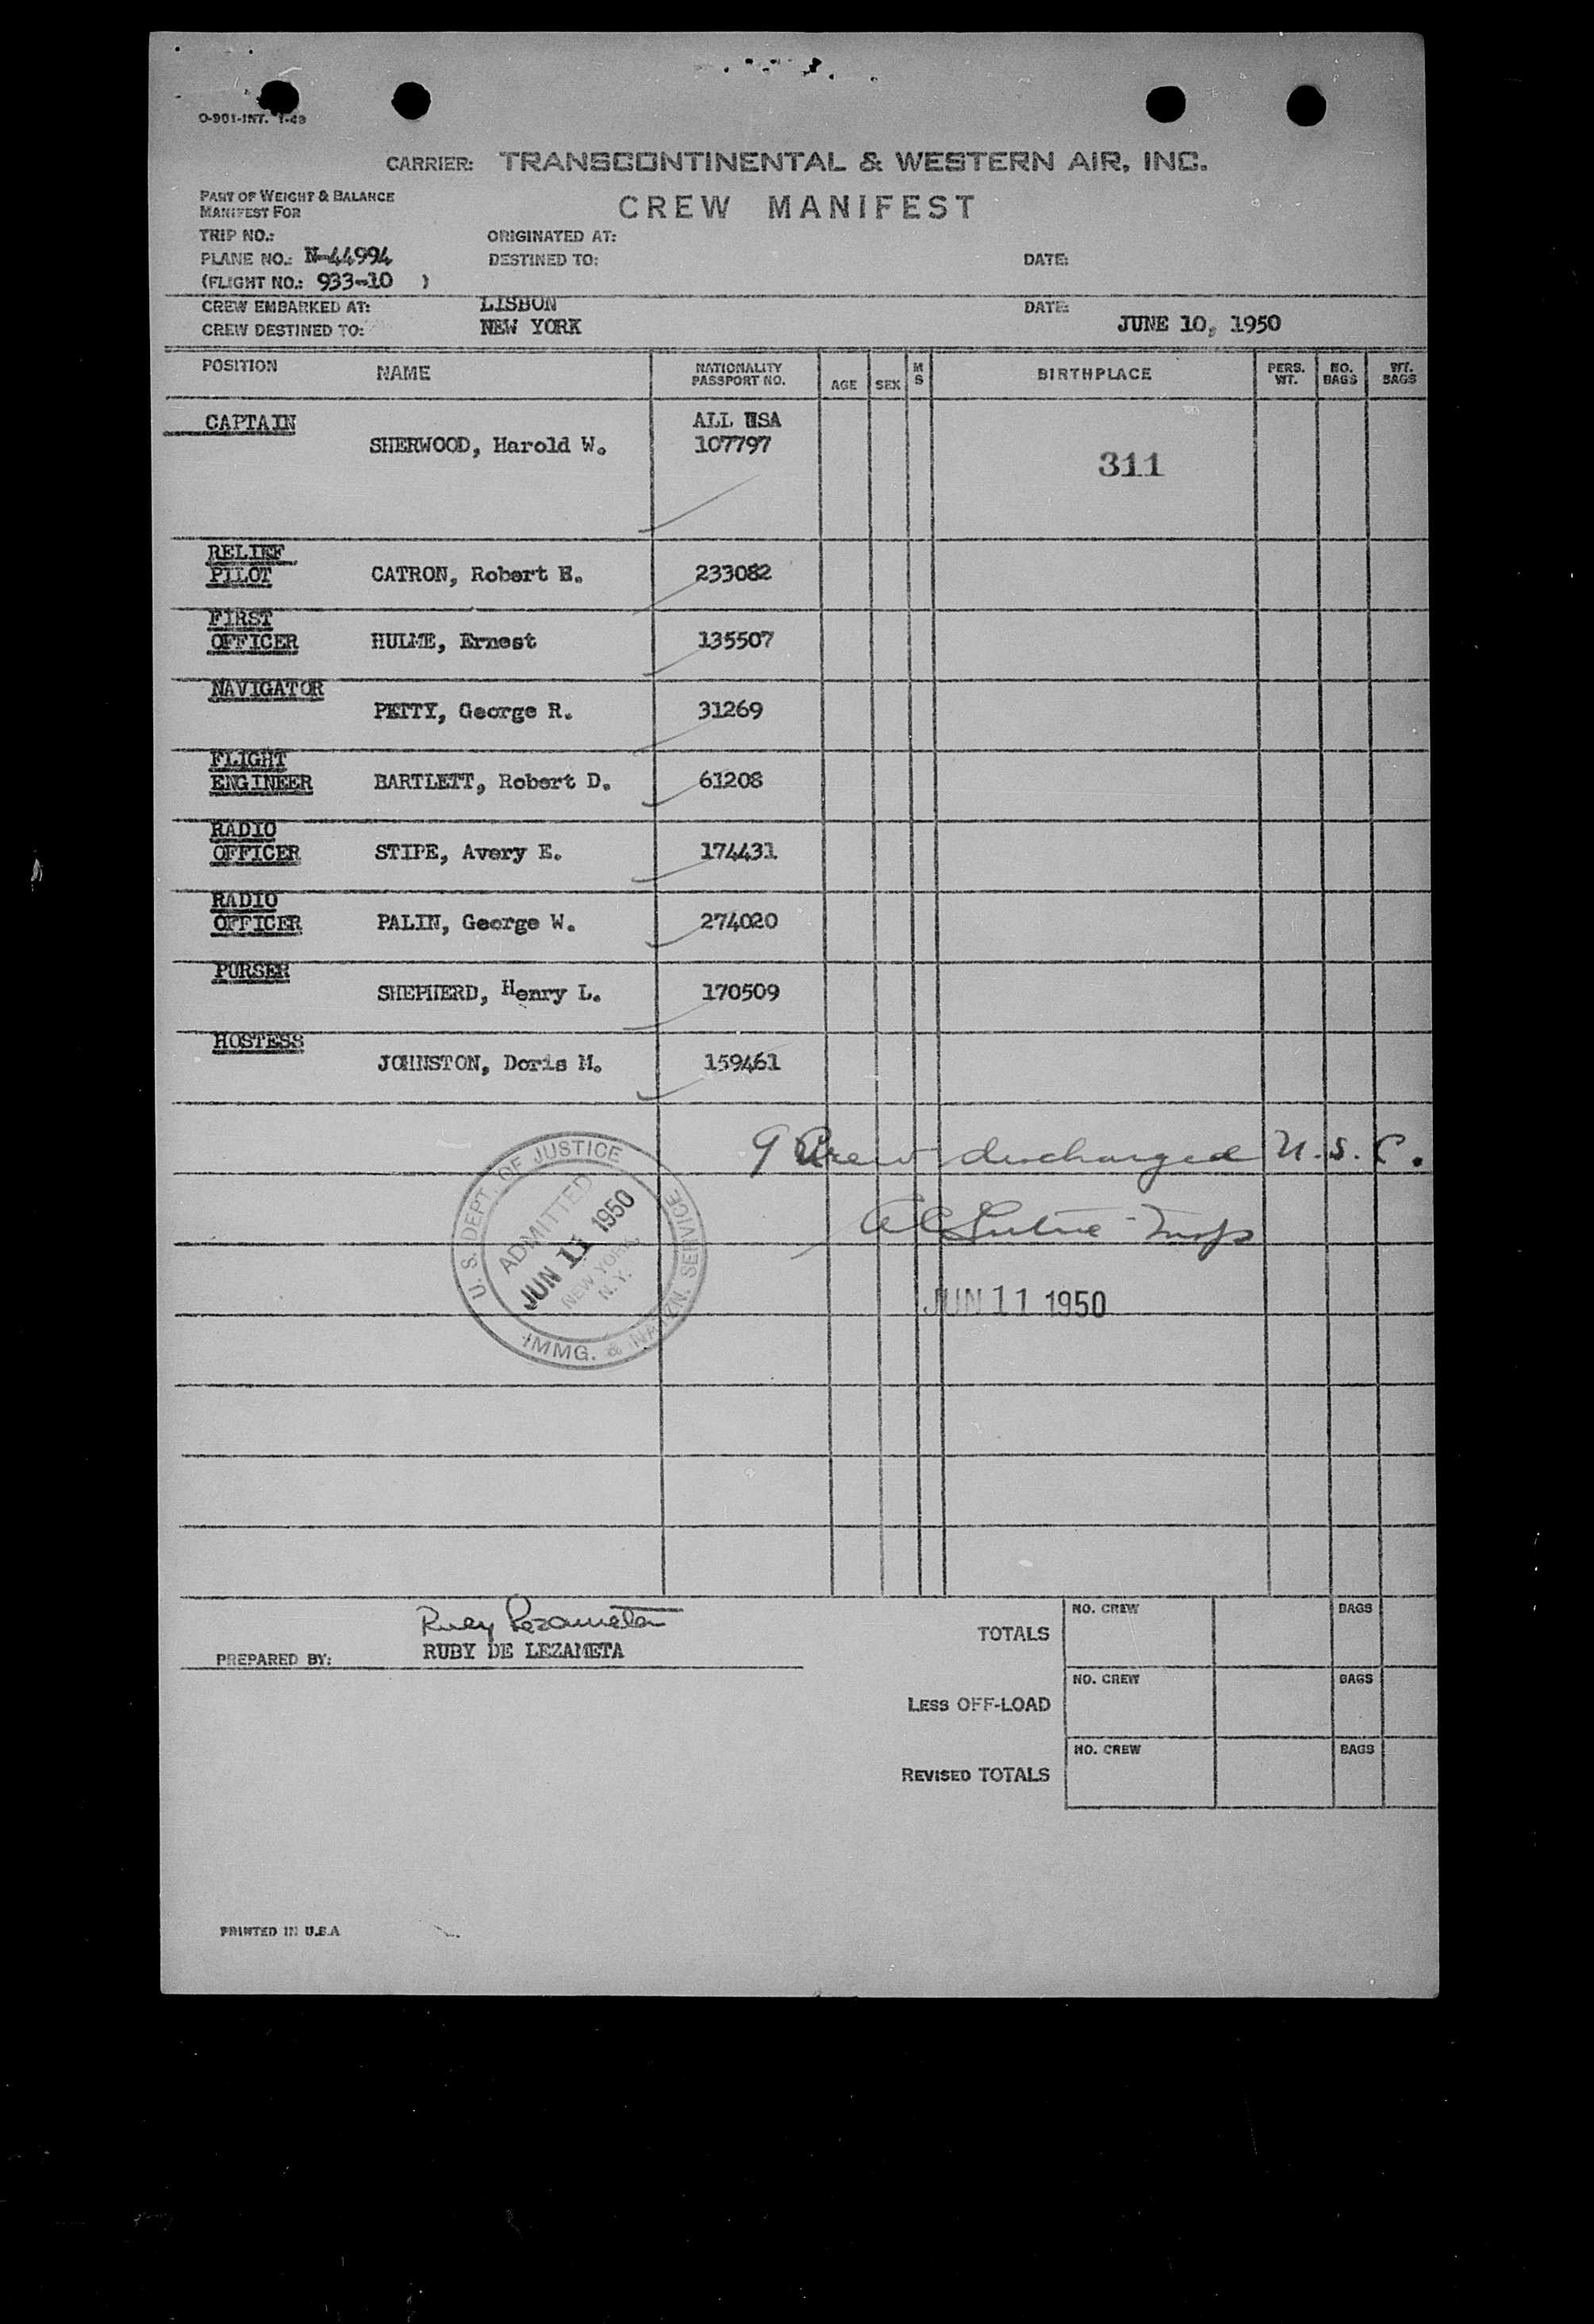 O-901-INT. 1-49
CARRIER: TRANSCONTINENTAL & WESTERN AIR, INC.
PART OF WEIGHT & BALANCE
MANIFEST FOR
CREW MANIFEST
TRIP NO.: ORIGINATED AT:
PLANE NO.: N-44994 DESTINED TO: DATE:
(FLIGHT NO.: 933-10 )
CREW EMBARKED AT: LISBON DATE:
CREW DESTINED TO: NEW YORK JUNE 10, 1950
POSITION NAME NATIONALITY PASSPORT NO. AGE SEX M S BIRTHPLACE PERS. WT. NO. BAGS WT. BAGS
CAPTAIN ALL USA
SHERWOOD, Harold W. 107797
311
RELIEF
PILOT CATRON, Robert E. 233082
FIRST
OFFICER HULME, Ernest 135507
NAVIGATOR
PETTY, George R. 31269
FLIGHT
ENGINEER BARTLETT, Robert D. 61208
RADIO
OFFICER STIPE, Avery E. 174431
RADIO
OFFICER PALIN, George W. 274020
PURSER
SHEPHERD, Henry L. 170509
HOSTESS
JOHNSTON, Doris M. 159461
9 Crew discharged U.S.C.
U. S. DEPT. OF JUSTICE
ADMITTED
JUN 11 1950
NEW YORK,
N. Y.
IMMG. & NATZN. SERVICE
Insp
JUN 11 1950
PREPARED BY: RUBY DE LEZAMETA
TOTALS NO. CREW BAGS
LESS OFF-LOAD NO. CREW BAGS
REVISED TOTALS NO. CREW BAGS
PRINTED IN U.S.A